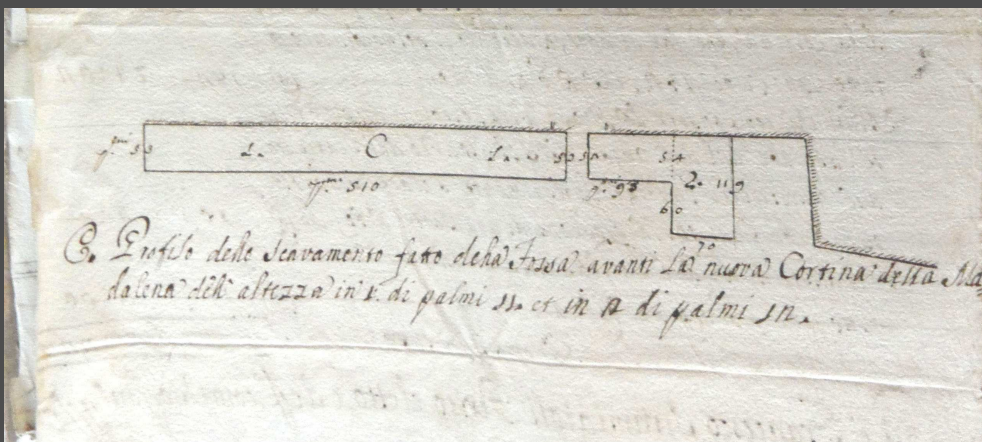 C
1.
1.
50
50
54
pmi 510
p. 98
2.
119
60
C. Profilo dello scavamento fatto della Fossa avanti la nuova Cortina della Ma=
dalena dell' altezza in 1. di palmi 11. et in 2 di palmi